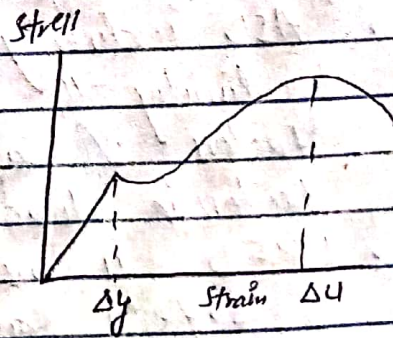 Stress
Δy Strain Δu